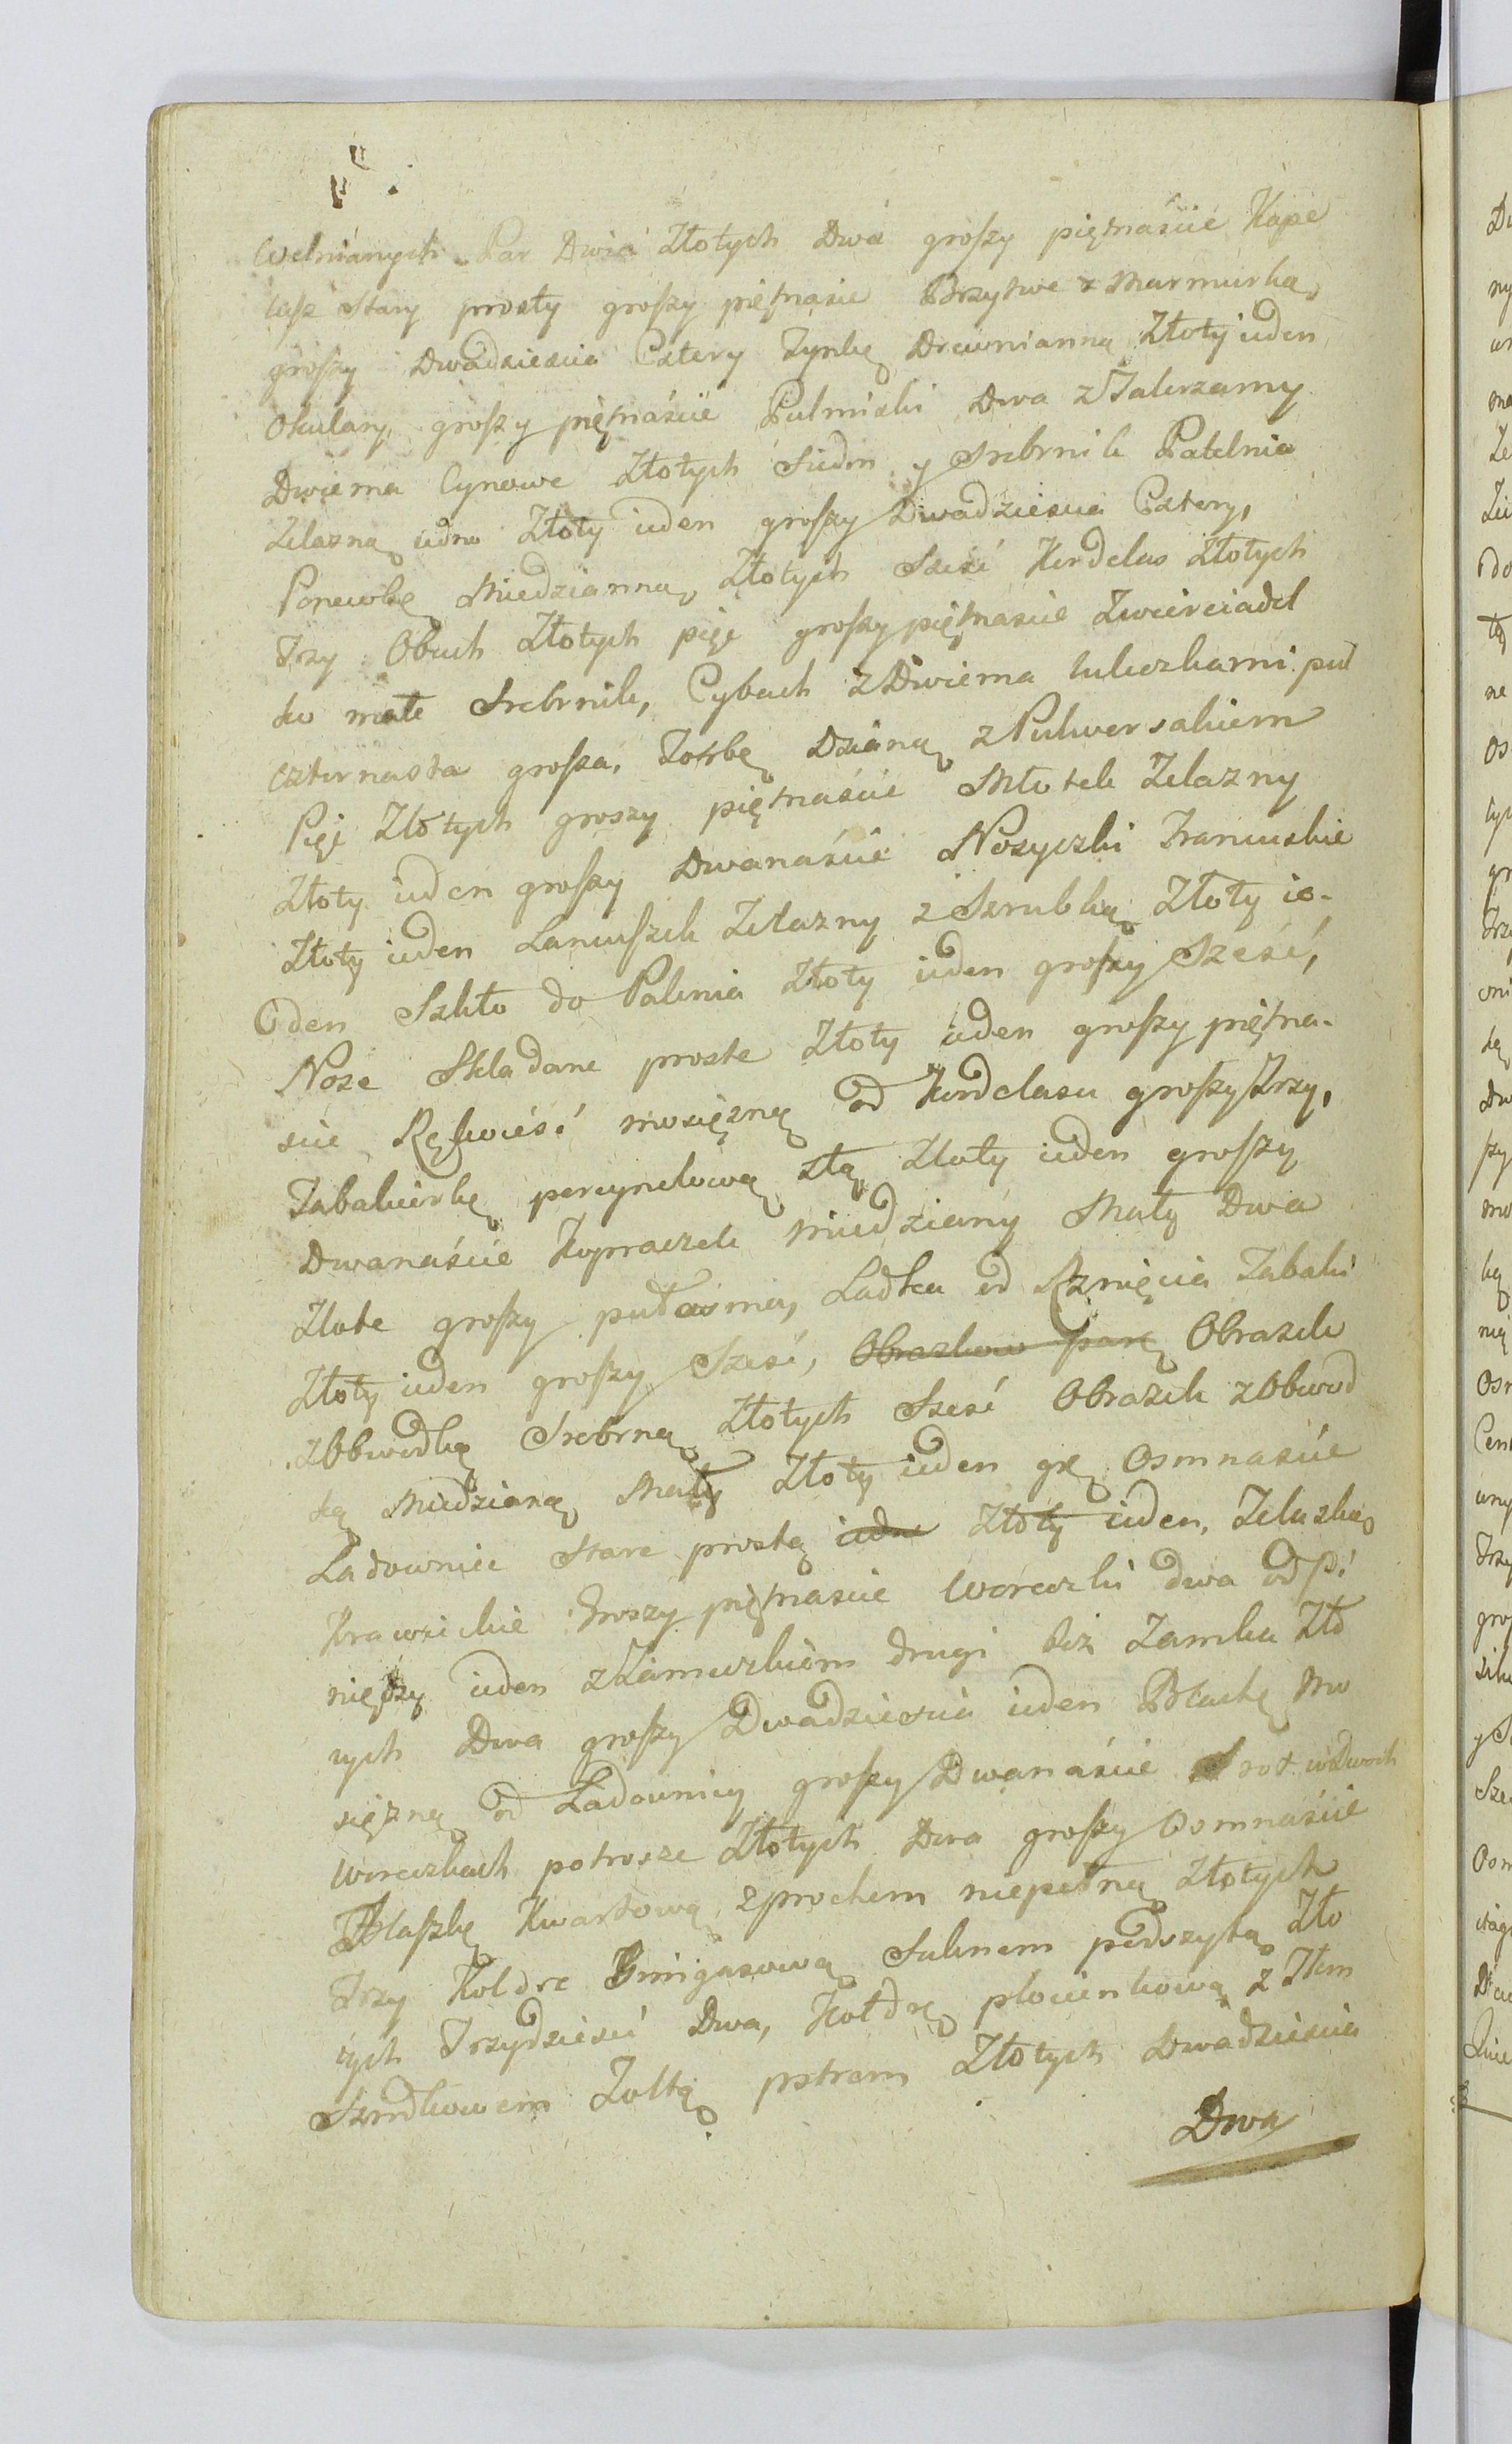 Wełniánych Par Dwie Złotych Dwá groszy piętnaście Kape
lusz stary prosty groszy piętnaście Brzytwe z Marmurką
groszy Dwadziescia Cztery Tynkę Drewnianną Złoty ieden
Okulary groszy piętnaście Pulmiski Dwa z Talerzamy
Dwiema Cynowe Złotych Siedm y Srebrnik Patelnia
Zelazną iedna Złoty ieden groszy Dwadziescia Cztery,
Ponewkę Miedzianną, Złotych Szesć Kordelas Złotych
Trzy Obuch Złotych pięc groszy piętnascie Zwierciadeł
ko małe Srebrnik, Cybuch z Dwiema luleczkami puł
czternasta grosza. Torbę Dzianą z Pulwersakiem
Pięć Złotych groszy piętnaście Młotek Zelazny
Złoty ieden groszy Dwanaście Nozyczki Francuskie
Złoty ieden Lancuszek Zelazny z Szrubką Złoty ie-
den Szkło do Palenia Złoty ieden groszy Szesć,
Noze Składane proste Złoty ieden groszy piętna-
scie Rękoieść mosięzną od Kordelasu groszy Trzy,
Tabakierkę porcynelową złą, Złoty ieden groszy
Dwanaście Kopraczek miedziany Mały Dwa
Złote groszy puł osma, Ladka od Rznięcia Tabaki
Złoty ieden groszy Szesć, Obrazkow parę Obrazek
z Obwodką Srebrną Złotych Szesć Obrazek z Obwod
ką Miedzianą Mały Złoty ieden grę Osmnaście
Ladownice stare prostę iedne Złoty ieden, Zelazko
Krawieckie Groszy piętnascie Woreczki dwa od Pi
niędzy ieden z Zameczkiem drugi bez Zamku Zło
tych Dwa groszy Dwadziescia ieden Blachę Mo
sięzną od Ladownicy groszy Dwanaście Srot w Dwoch
Woreczkach potrosze Złotych Dwa groszy Osmnaście
Flaszkę Kwartową z prochem niepełną Złotych
Trzy Koldre Suknem podszytą Zło
tych Trzydziesci Dwa, Kołdrę płocienkową z Tłem
Zołtą pstrem Złotych Dwadziescia
Dwa